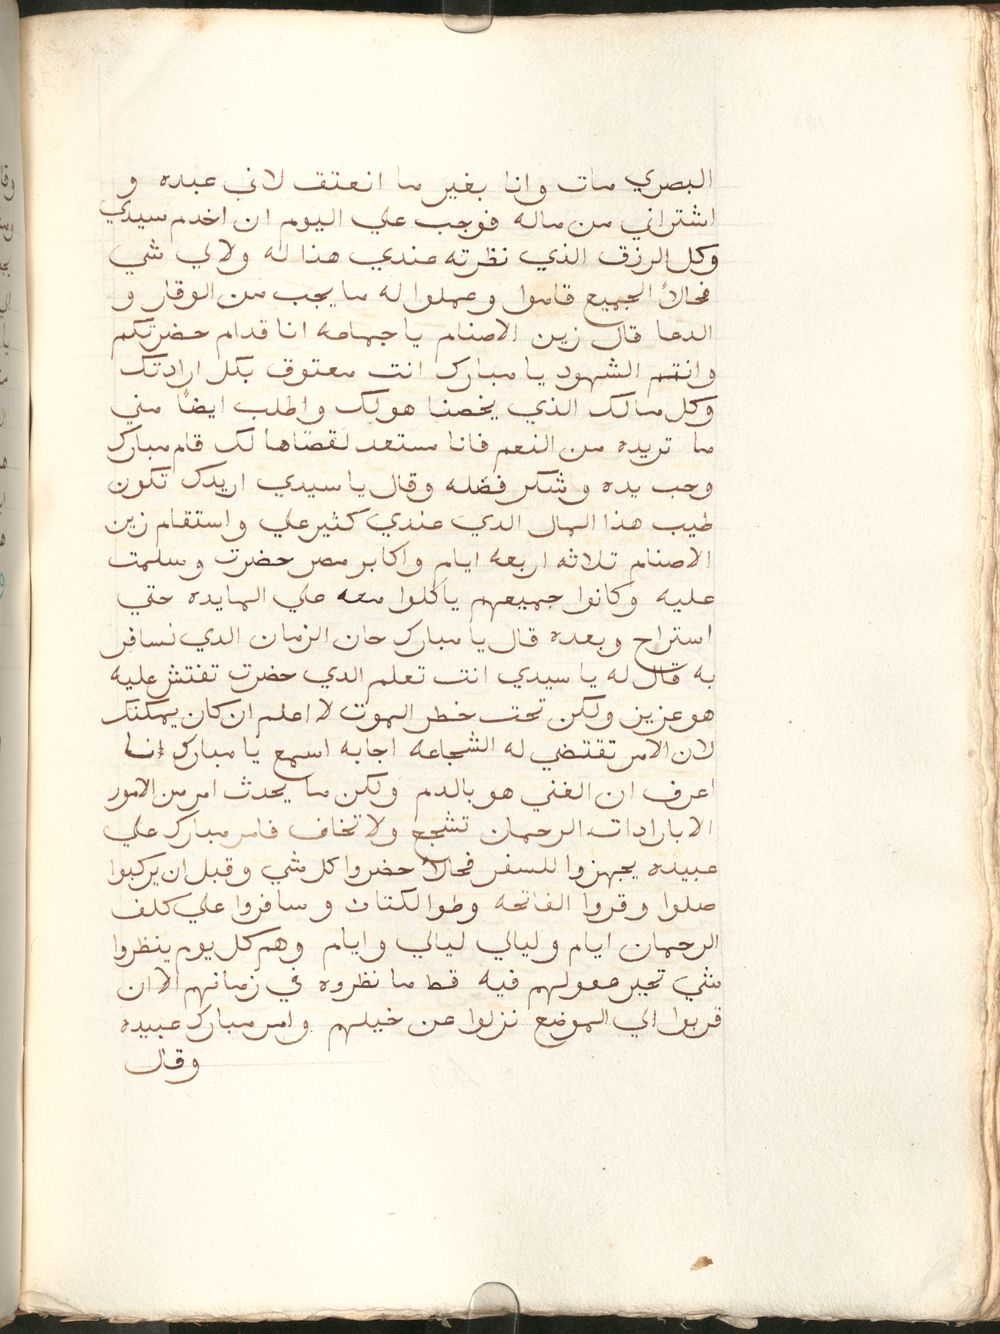 البصري مات وانا بغير ما انعتق لاني عبده و
اشتراني من ماله فوجب علي اليوم ان اخدم سيدي
وكل الرزق الذي نظرته عندي هذا له ولا لي شي
فحالاً الجميع قاموا وعملوا له ما يجب من الوقار و
الدعا قال زين الاصنام يا جماعه انا قدام حضرتكم
وانتم الشهود يا مبارك انت معتوق بكل ارادتك
وكل مالك الذي يخصنا هو لك واطلب ايضاً مني
ما تريده من النعم فانا مستعد لقضاها لك قام مبارك
وحب يده وشكر فضله وقال يا سيدي اريدك تكون
طيب هذا المال الدي عندي كثير علي واستقام زين
الاصنام تلاثه اربعه ايام واكابر مصر حضرت وسلمت
عليه وكانوا جميعهم ياكلوا معه علي المايده حتي
استراح وبعده قال يا مبارك حان الزمان الدي نسافر
به قال له يا سيدي انت تعلم الدي حضرت تفتش عليه
هو عزيز ولكن تحت خطر الموت لا اعلم ان كان يمكنك
لان الامر تقتضي له الشجاعه اجابه اسمع يا مبارك انا
اعرف ان الغني هو بالدم ولكن ما يحدث امر من الامور
الا بارادات الرحمان تشجع ولا تخاف فامر مبارك علي
عبيده يجهزوا للسفر فحالاً حضروا كل شي وقبل ان يركبوا
صلوا وقروا الفاتحه وسافروا علي كلف
الرحمان ايام وليالي ليالي وايام وهم كل يوم ينظروا
شي تحير عقولهم فيه قط ما نظروه في زمانهم الا ان
قربوا الي الموضع نزلوا عن خيلهم وامر مبارك عبيده
وقال